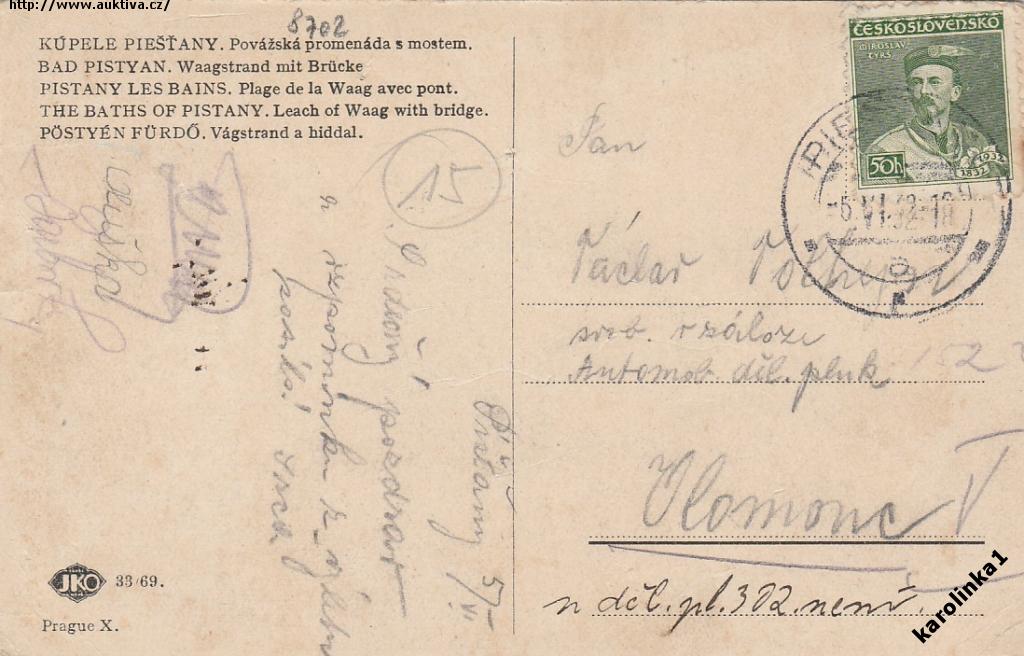 http://www.auktiva.cz/
8702
KÚPELE PIEŠŤANY. Povážská promenáda s mostem.
BAD PISTYAN. Waagstrand mit Brücke
PISTANY LES BAINS. Plage de la Waag avec pont.
THE BATHS OF PISTANY. Leach of Waag with bridge.
PÖSTYÉN FÜRDŐ. Vágstrand a hiddal.
15
Píšťany 5/VI
Srdečný pozdrav
a vzpomínku z výletu
posílá
ČESKOSLOVENSKO
MIROSLAV
TYRŠ
50h
1932
1832
Pan
Václav
svob. v záloze
Automob. děl. pluk
Olomouc V
u děl. pl. 302 není.
JKO
33/69.
Prague X.
karolinka1